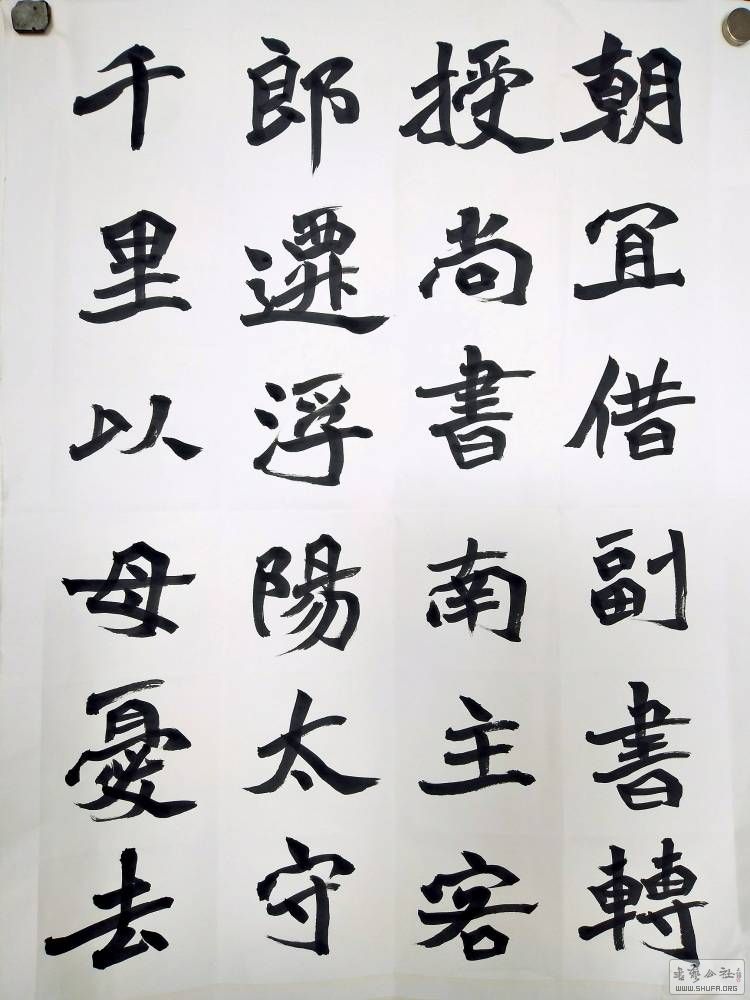 朝冝借副書轉
授尚書南主客
郎遷浮陽太守
千里以母憂去
WWW.SHUFA.ORG